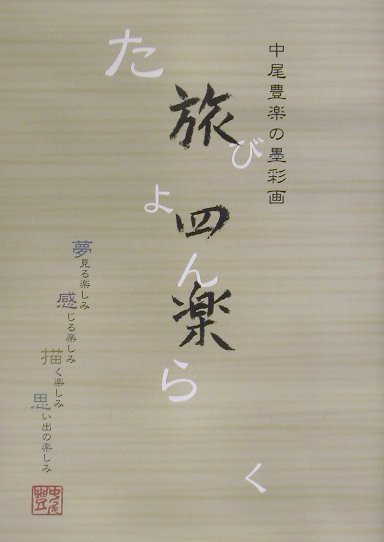 中尾豊楽の墨彩画
旅四楽
たびよんらく
夢見る楽しみ
感じる楽しみ
描く楽しみ
思い出の楽しみ
中尾